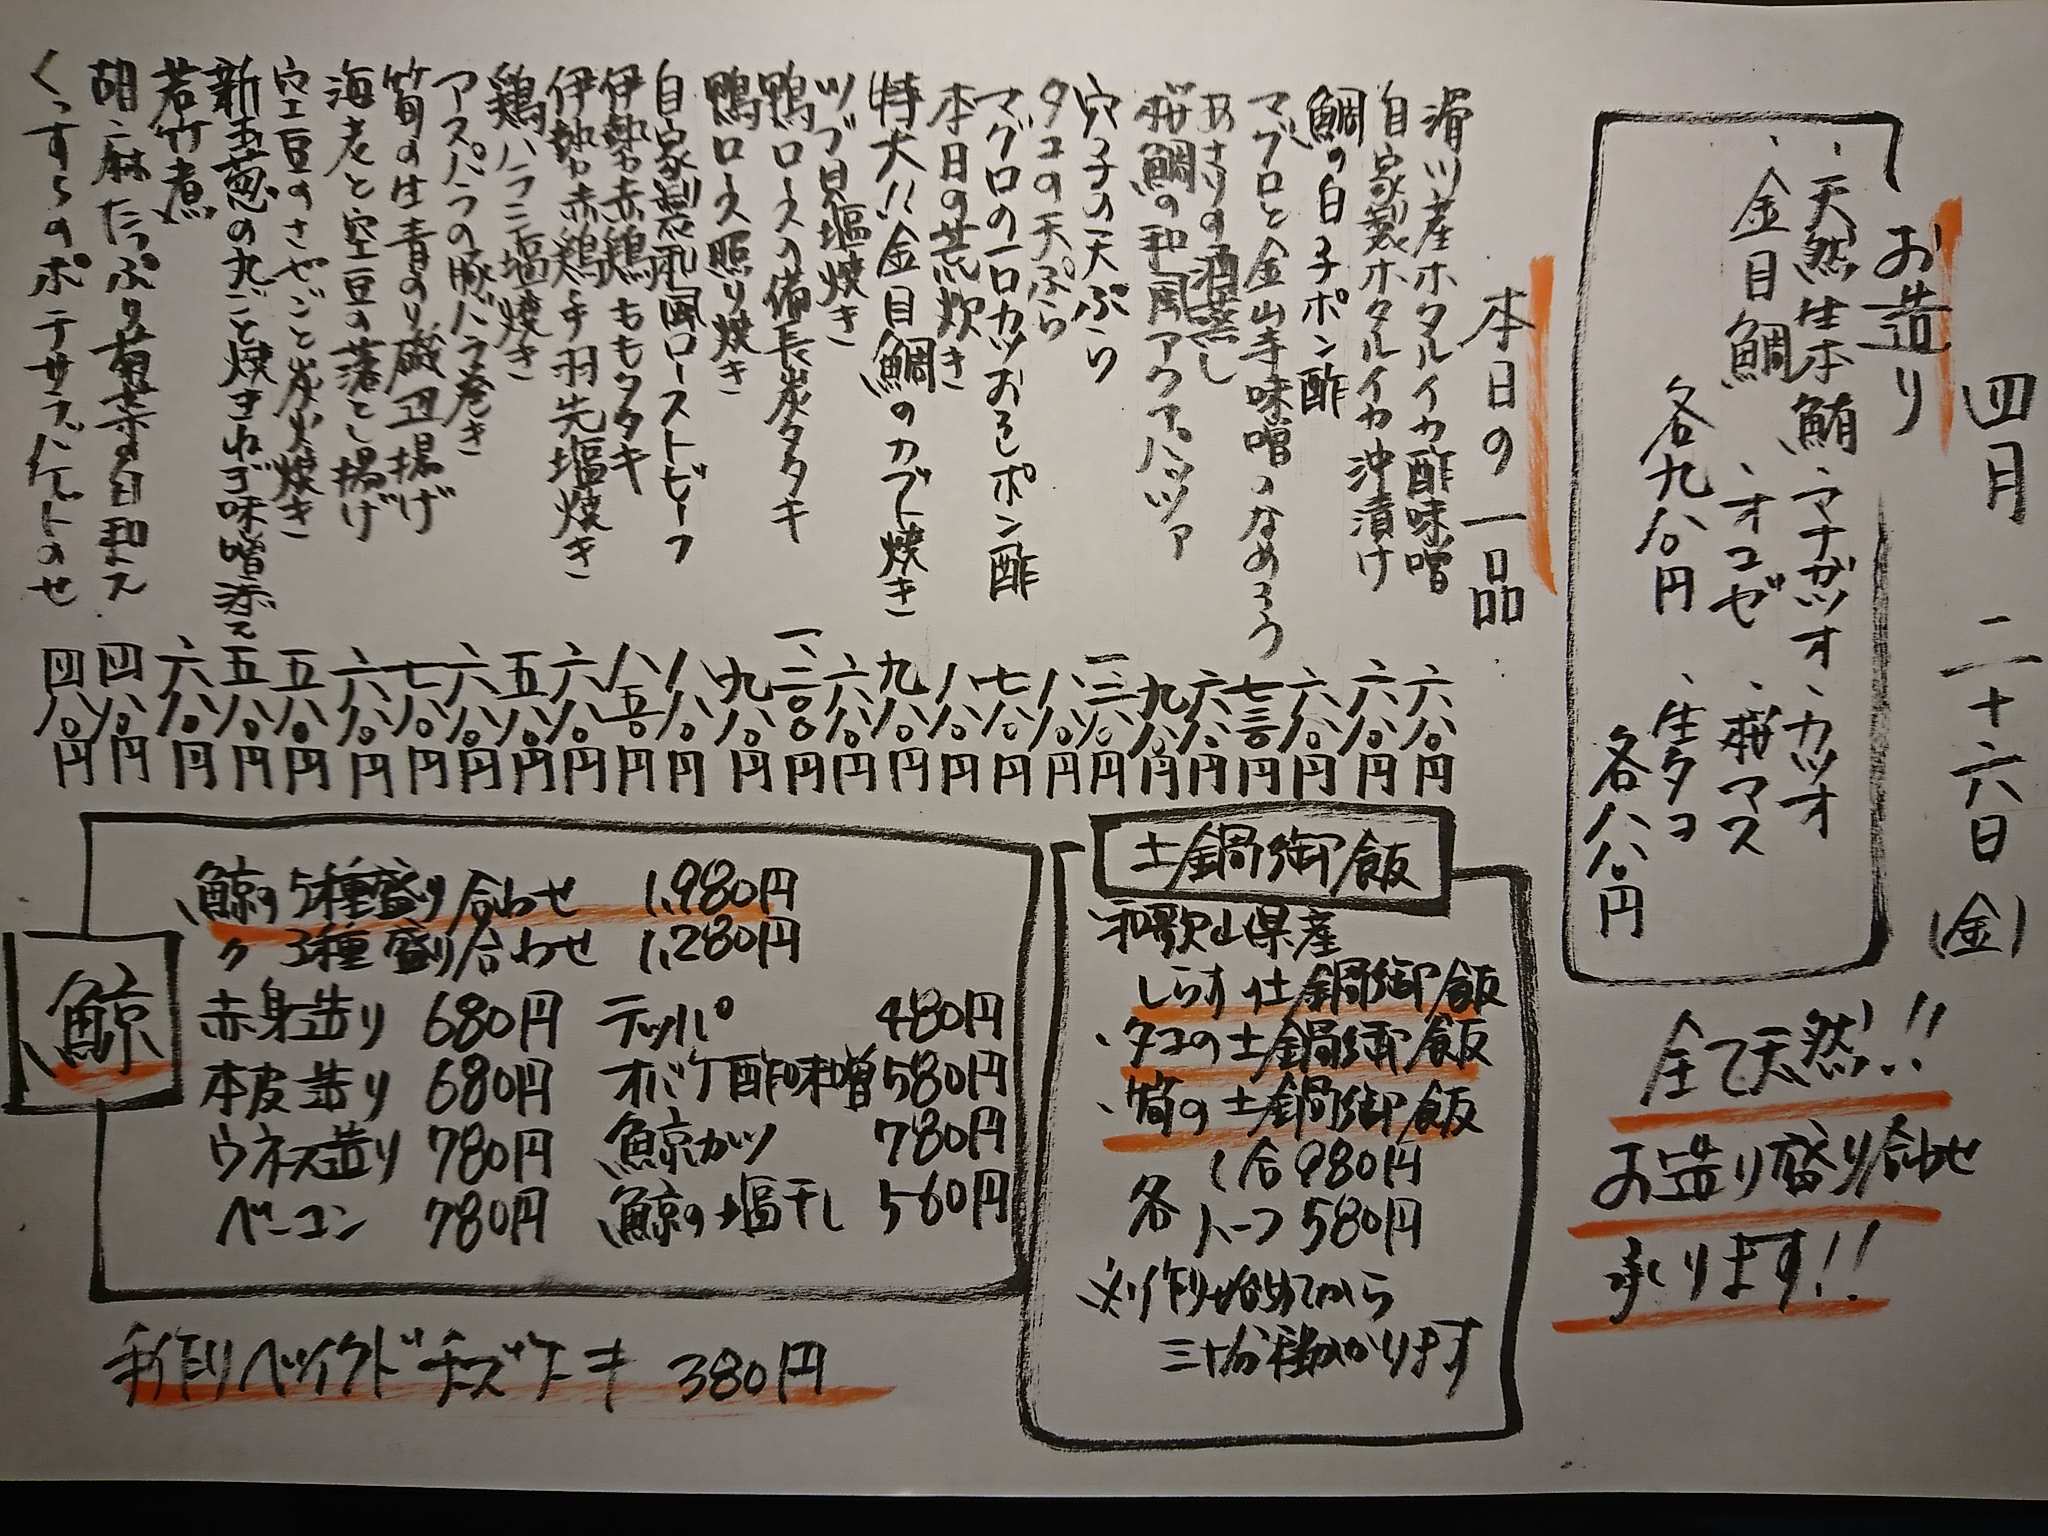 四月 二十六日(金)
お造り
、天然生本鮪 、マナガツオ 、カツオ
、金目鯛 、オコゼ 、桜マス
各九八〇円 、生タコ
各八八〇円
全て天然!!
お造り盛り合わせ
承ります!!
本日の一品
滑川産ホタルイカ酢味噌 六八〇円
自家製ホタルイカ沖漬け 六八〇円
鯛の白子ポン酢 六八〇円
マグロと金山寺味噌のなめろう 七三〇円
あさりの酒蒸し 六八〇円
桜鯛の和風アクアパッツァ 九八〇円
穴子の天ぷら 一、二八〇円
タコの天ぷら 八八〇円
マグロの一口カツおろしポン酢 七八〇円
本日の荒炊き 八八〇円
特大!!金目鯛のカブト焼き 九八〇円
ツブ貝塩焼き 六八〇円
鴨ロースの備長炭タタキ 一、二〇〇円
鴨ロース照り焼き 九八〇円
自家製和風ローストビーフ 八八〇円
伊勢赤鶏ももタタキ 八五〇円
伊勢赤鶏手羽先塩焼き 六八〇円
鶏ハラミ塩焼き 五八〇円
アスパラの豚バラ巻き 六八〇円
筍の生青のり磯辺揚げ 七八〇円
海老と空豆の落とし揚げ 六八〇円
空豆のさやごと炭火焼き 五八〇円
新玉葱の丸ごと焼きねぎ味噌添え 五八〇円
若竹煮 六八〇円
胡麻たっぷり菊菜の白和え 四八〇円
くっすらのポテサラバケットのせ 四八〇円
土鍋御飯
、和歌山県産
しらす土鍋御飯
、タコの土鍋御飯
、筍の土鍋御飯
各 1合980円
ハーフ580円
※作り始めてから
三十分程かかります
鯨
、鯨の5種盛り合わせ 1,980円
〃 3種盛り合わせ 1,280円
赤身造り 680円 テッパ 480円
本皮造り 680円 オバケ酢味噌 580円
ウネス造り 780円 鯨カツ 780円
ベーコン 780円 鯨の塩干し 560円
手作りベイクドチーズケーキ 380円